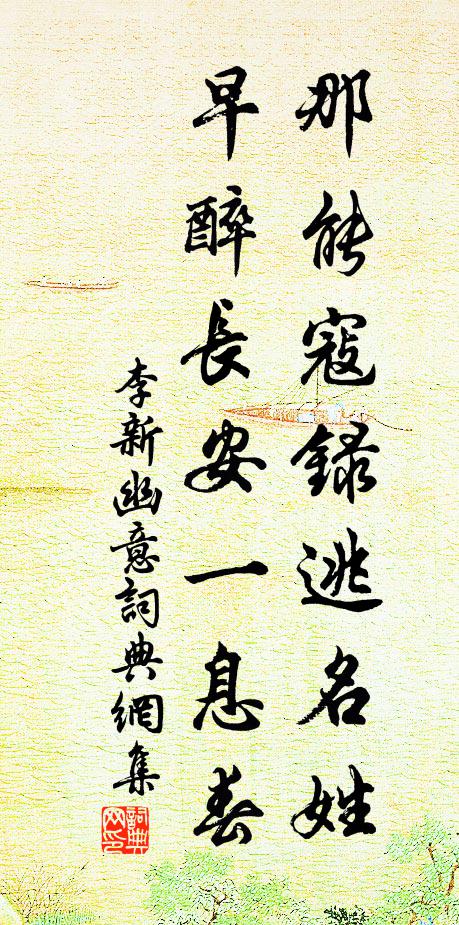 那能寇録逃名姓
早醉長安一息春
李新幽意詞典網集
詞典網印